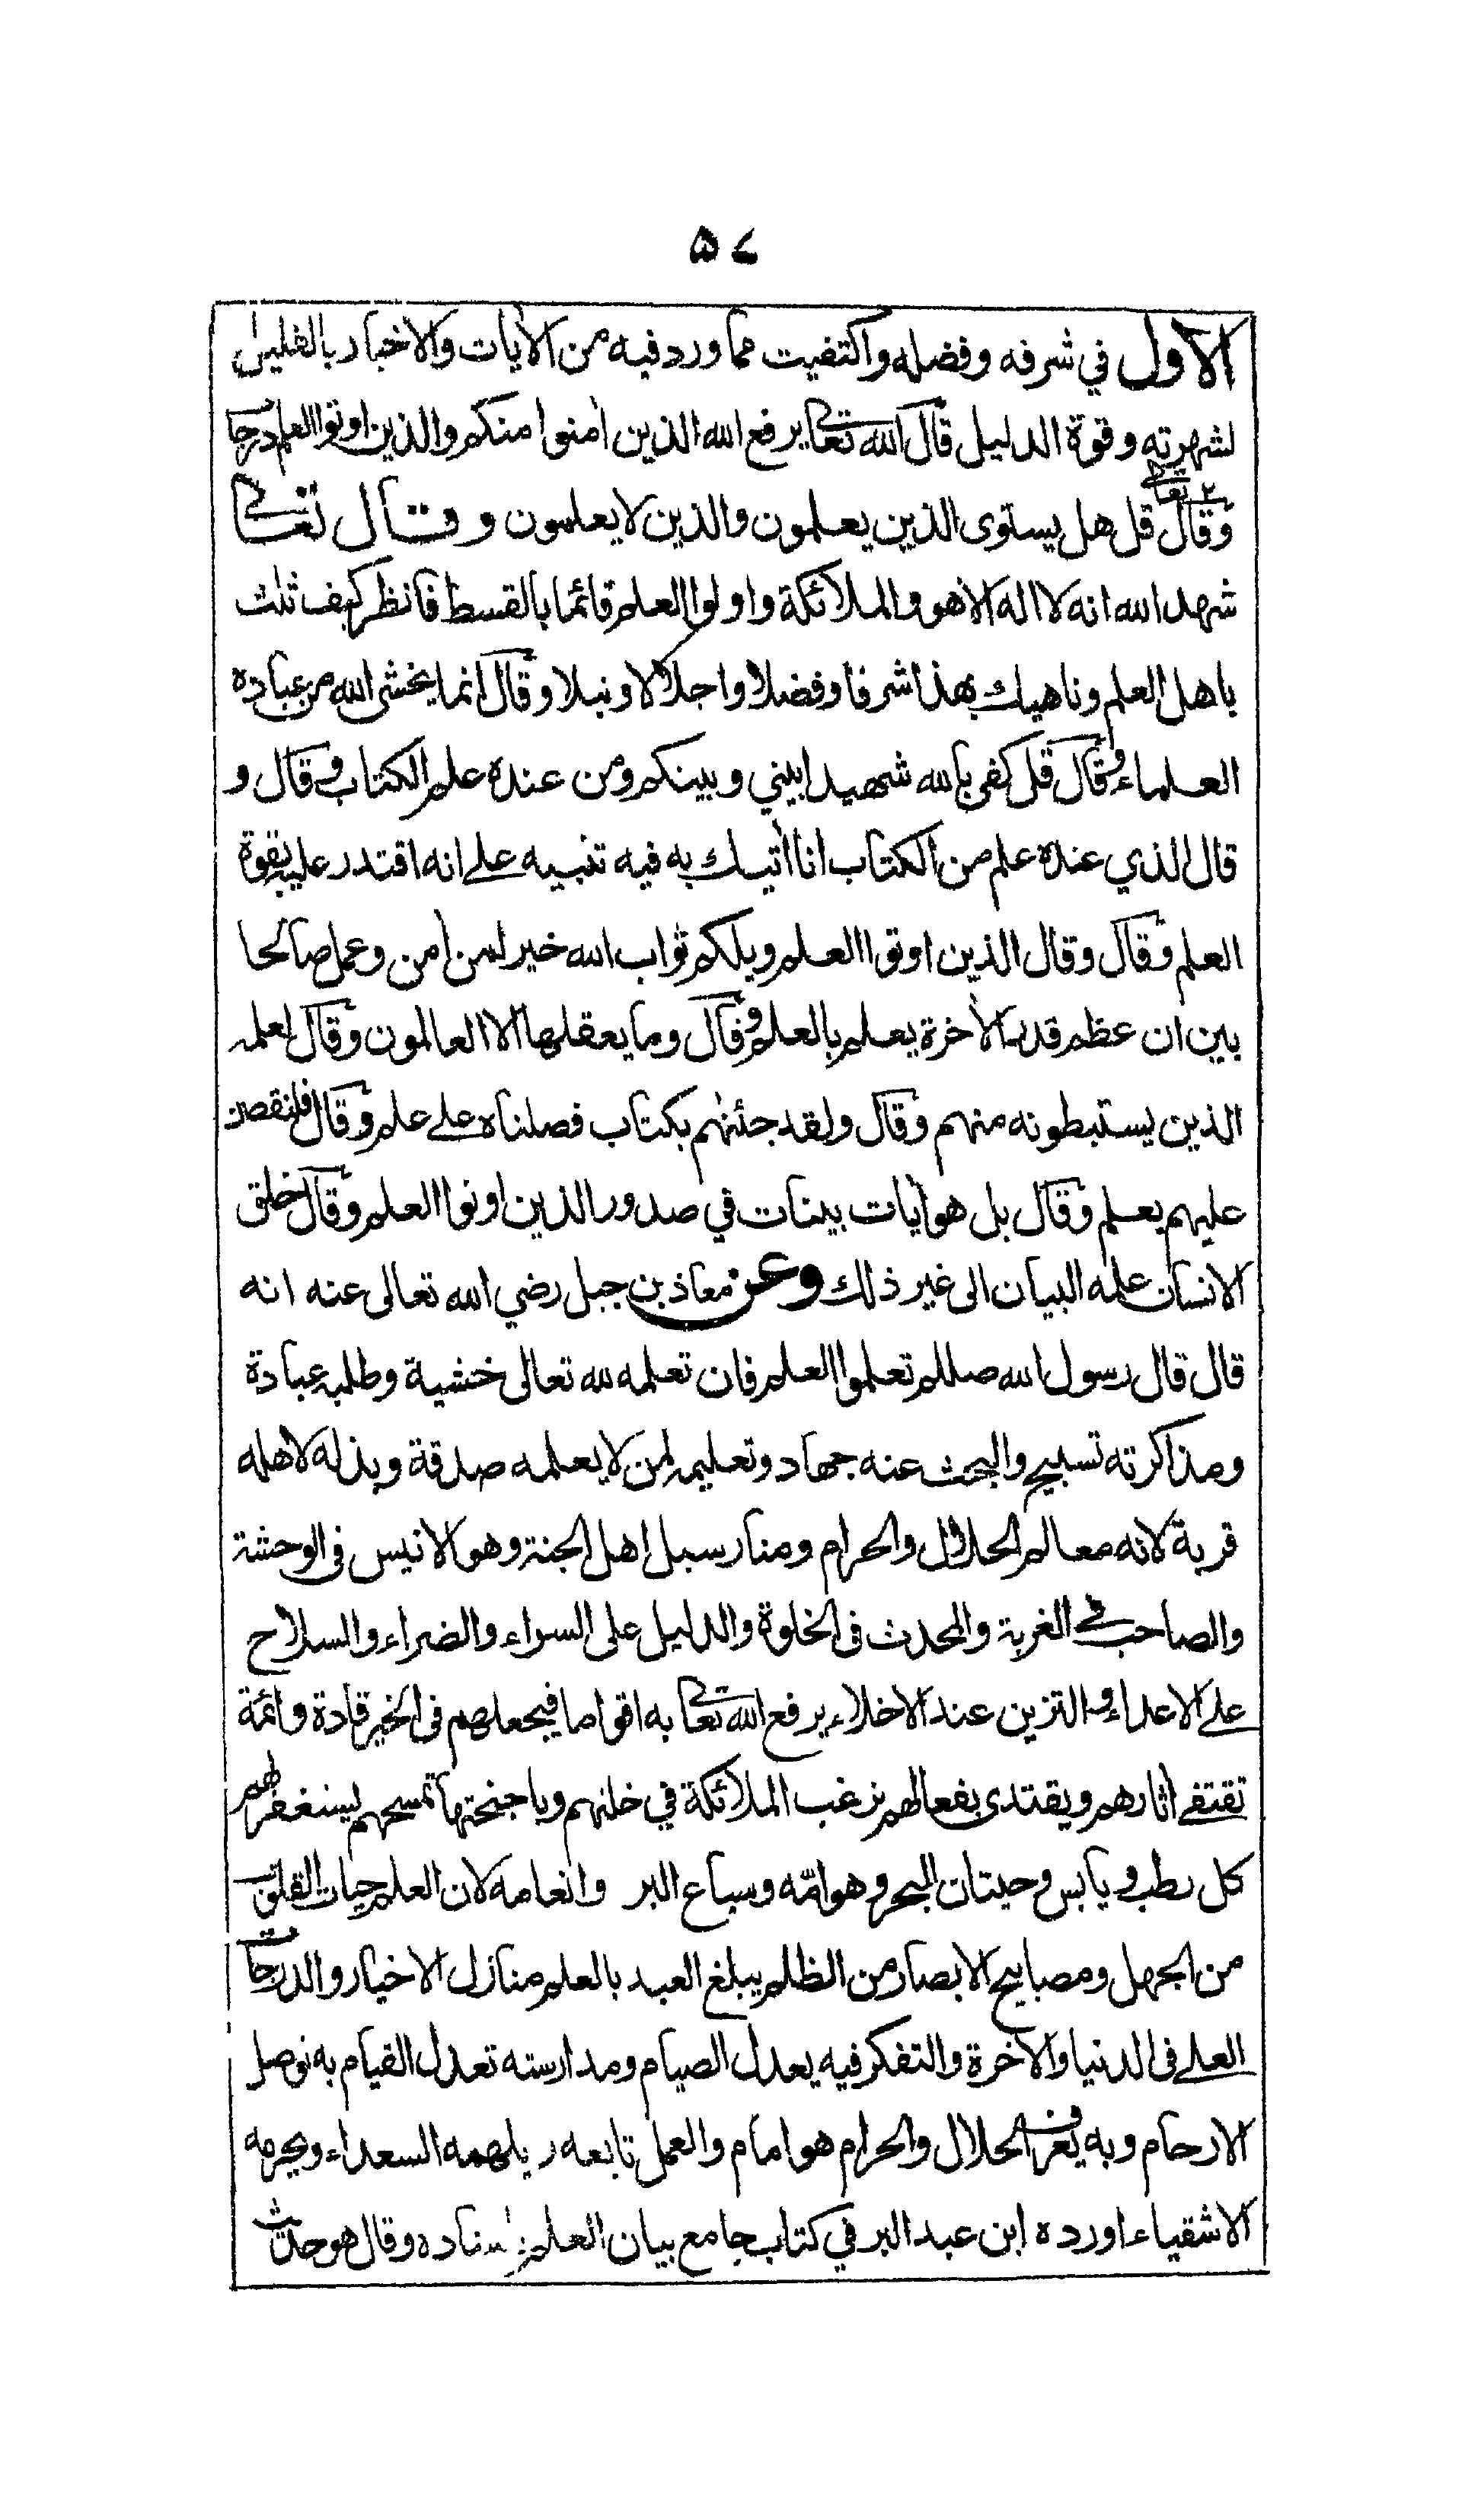 ۵۷
الاول في شرفه وفضله واكتفيت مما ورد فيه من الآيات والاخبار بالقليل
لشهرته وقوة الدليل قال الله تعالى يرفع الله الذين اٰمنوا منكم والذين اوتوا العلم درجات
وقال تعالى قل هل يستوى الذين يعلمون والذين لا يعلمون وقال تعالى
شهد الله انه لا اله الا هو والملائكة واولوا العلم قائما بالقسط فانظر كيف ثلث
باهل العلم وناهيك بهذا شرفا وفضلا واجلالا ونبلا وقال انما يخشى الله من عباده
العلماء وقال قل كفى بالله شهيدا بيني وبينكم ومن عنده علم الكتاب وقال و
قال الذي عنده علم من الكتاب انا اٰتيك به فيه تنبيه على انه اقتدر عليه بقوة
العلم وقال وقال الذين اوتوا العلم ويلكم ثواب الله خير لمن اٰمن وعمل صالحا
بين ان عظم قدر الاٰخرة يعلم بالعلم وقال وما يعقلها الا العالمون وقال لعلمه
الذين يستبطونه منهم وقال ولقد جئنٰهم بكتاب فصلناه على علم وقال فلنقصن
عليهم بعلم وقال بل هو اٰيات بينات في صدور الذين اوتوا العلم وقال خلق
الانسان علمه البيان الى غير ذلك وعن معاذ بن جبل رضي الله تعالى عنه انه
قال قال رسول الله صللم تعلموا العلم فان تعلمه لله تعالى خشية وطلبه عبادة
ومذاكرته تسبيح والبحث عنه جهاد وتعليمه لمن لا يعلمه صدقة وبذله لاهله
قربة لانه معالم الحلال والحرام ومنار سبل اهل الجنة وهو الانيس فى الوحشة
والصاحب في الغربة والمحدث فى الخلوة والدليل على السراء والضراء والسلاح
على الاعداء والتزين عند الاخلاء يرفع الله تعالى به اقواما فيجعلهم فى الخير قادة وائمة
تقتفى اٰثارهم ويقتدى بفعالهم نرغب الملائكة في خلتهم وباجنحتها تمسحهم يستغفر لهم
كل رطب ويابس وحيتان البحر وهوامّه وسباع البر وانعامه لان العلم حيات القلوب
من الجهل ومصابيح الابصار من الظلم يبلغ العبد بالعلم منازل الاخيار والدرجات
العلى فى الدنيا والاٰخرة والتفكر فيه يعدل الصيام ومدارسته تعدل القيام به توصل
الارحام وبه يعرف الحلال والحرام هو امام والعمل تابعه ر يلهمه السعداء ويحرمه
الاشقياء اورده ابن عبد البر في كتاب جامع بيان العلم باسناده وقال هو حديث